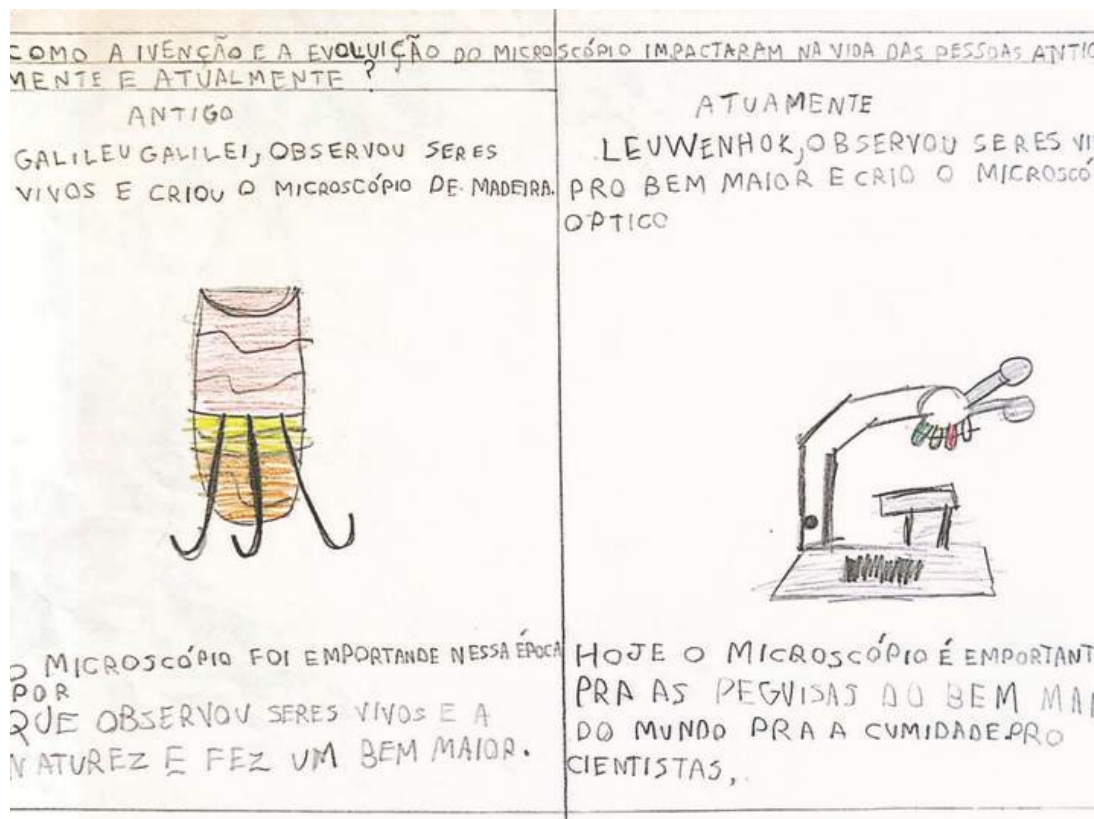 COMO A IVENÇÃO E A EVOLUIÇÃO DO MICROSCÓPIO IMPACTARAM NA VIDA DAS PESSOAS ANTIG
MENTE E ATUALMENTE ?
ANTIGO
GALILEU GALILEI, OBSERVOU SERES
VIVOS E CRIOU O MICROSCÓPIO DE MADEIRA.
O MICROSCÓPIO FOI EMPORTANDE NESSA ÉPOCA
POR
QUE OBSERVOU SERES VIVOS E A
NATUREZ E FEZ UM BEM MAIOR.
ATUAMENTE
LEUWENHOK, OBSERVOU SERES VI
PRO BEM MAIOR E CRIO O MICROSCÓ
OPTICO
HOJE O MICROSCÓPIO É EMPORTANT
PRA AS PEGUISAS DO BEM MAI
DO MUNDO PRA A CUMIDADE.PRO
CIENTISTAS,.